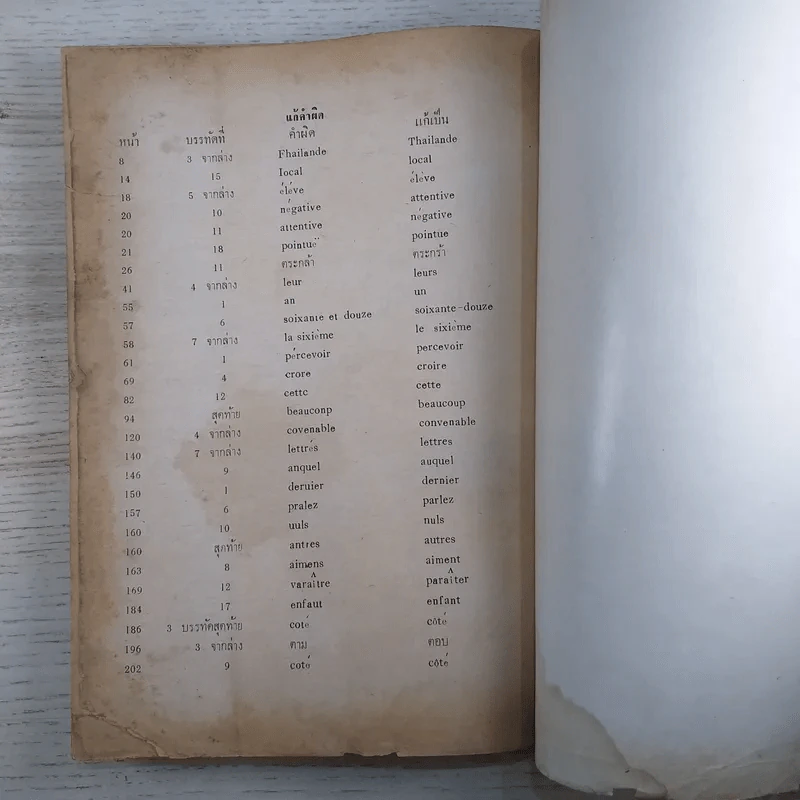 แก้คำผิด
หน้า บรรทัดที่ คำผิด แก้เป็น
8 3 จากล่าง Fhailande Thailande
14 15 Iocal local
18 5 จากล่าง éléve élève
20 10 négative attentive
20 11 attentive négative
21 18 pointuë pointue
26 11 ตระกล้า ตระกร้า
41 4 จากล่าง leur leurs
55 1 an un
57 6 soixante et douze soixante-douze
58 7 จากล่าง la sixième le sixième
61 1 pércevoir percevoir
69 4 crore croire
82 12 cettc cette
94 สุดท้าย beauconp beaucoup
120 4 จากล่าง covenable convenable
140 7 จากล่าง lettrés lettres
146 9 anquel auquel
150 1 deruier dernier
157 6 pralez parlez
160 10 uuls nuls
160 สุดท้าย antres autres
163 8 aimens aiment
169 12 varaître paraîter
184 17 enfaut enfant
186 3 บรรทัดสุดท้าย coté côté
196 3 จากล่าง ตาม ตอบ
202 9 coté côté